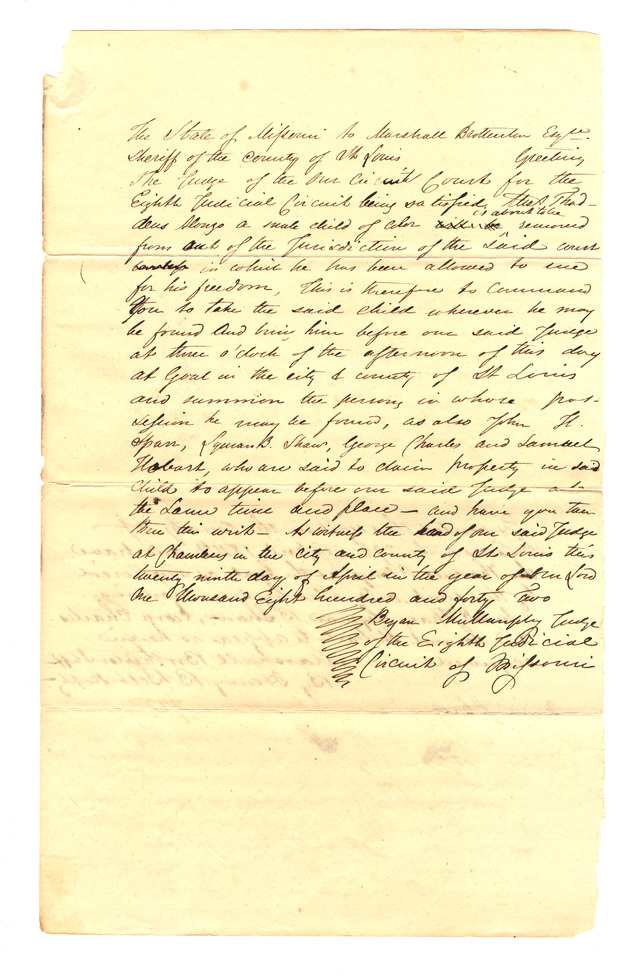 The State of Missouri to Marshall Brotherton Esqre.
Sheriff of the county of St Louis Greeting
The Judge of the Our Circuit Court for the
Eighth Judicial Circuit being satisfied, that Thad-
deus Alonzo a male child of color is about to be removed
from out of the Jurisdiction of the said court
in which he has been allowed to sue
for his freedom, This is therefore to command
you to take the said child wherever he may
be found And bring him before our said Judge
at three o'clock of the afternoon of this day
at Goal in the city & county of St Louis
and summon the persons in whose pos-
session he may be found, as also John H.
Sparr, Lyman B. Shaw, George Charles and Samuel
Hobart, who are said to claim property in said
child to appear before our said Judge at
the same time and place – and have you then
there this writ – As witness the hand of our said Judge
at Chambers in the city and county of St Louis this
twenty ninth day of April in the year of our Lord
One Thousand Eight hundred and forty Two
Bryan Mullanphy Judge
of the Eighth Judicial
Circuit of Missouri